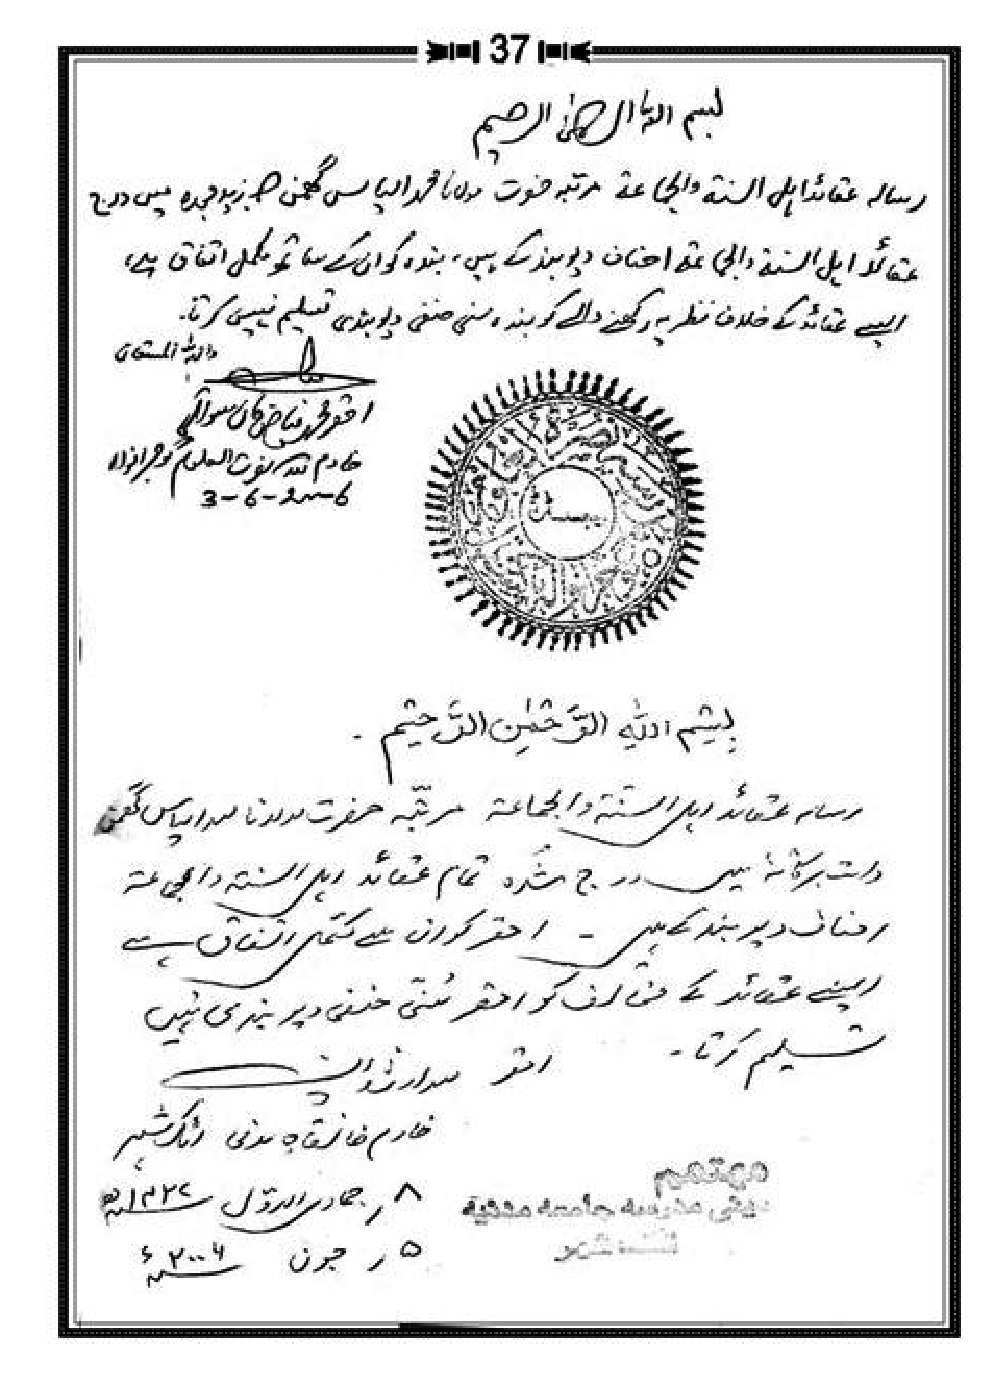 37
بسم اللہ الرحمٰن الرحیم
رسالہ عقائد اہل السنۃ والجماعۃ مرتبہ حضرت مولانا محمد الیاس گھمن صاحب زید مجدہ میں درج
عقائد اہل السنۃ والجماعۃ احناف دیوبند کے ہیں، بندہ کو ان کے ساتھ مکمل اتفاق ہے،
ایسے عقائد کے خلاف نظریہ رکھنے والے کو بندہ سنی حنفی دیوبندی تسلیم نہیں کرتا۔
واللہ المستعان
احقر محمد فیاض خان سواتی
خادم مدرسہ نصرت العلوم گوجرانوالہ
3-6-2006
بِسْمِ اللهِ الرَّحْمٰنِ الرَّحِيْمِ -
رسالہ عقائد اہل السنۃ والجماعۃ مرتّبہ حضرت مولانا محمد الیاس گھمن
دامت برکاتہٗ میں درج شدہ تمام عقائد اہل السنۃ والجماعۃ
احناف دیوبند کے ہیں - احقر کو ان سے مکمل اتفاق ہے
ایسے عقائد کے مخالف کو احقر سُنّی حنفی دیوبندی نہیں
تسلیم کرتا -
احقر محمد ارشد
خادم خانقاہ مدنی اٹک شہر
۸ر جمادی الاوّل ۱۴۲۷ھ
۵ر جون ۲۰۰۶ء
مہتمم
مدنی مدرسہ جامعہ مدنیہ
اٹک شہر